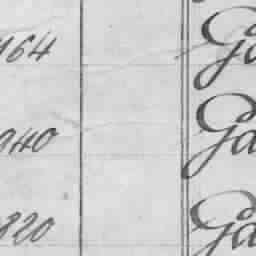 164 Ga
940 Ga
820 Ga